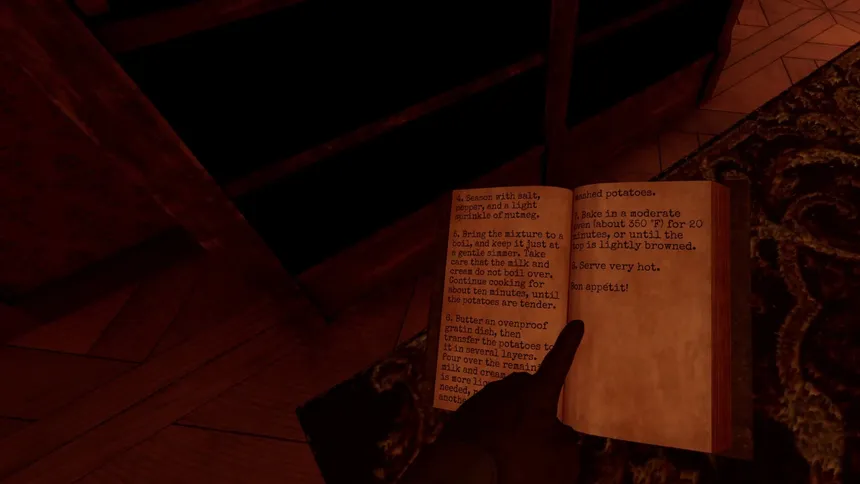 4. Season with salt,
pepper, and a light
sprinkle of nutmeg.
5. Bring the mixture to a
boil, and keep it just at
a gentle simmer. Take
care that the milk and
cream do not boil over.
Continue cooking for
about ten minutes, until
the potatoes are tender.
6. Butter an ovenproof
gratin dish, then
transfer the potatoes to
it in several layers.
Pour over the remain
milk and cream.
is more
needed,
mashed potatoes.
7. Bake in a moderate
oven (about 350 °F) for 20
minutes, or until the
top is lightly browned.
8. Serve very hot.
Bon appétit!